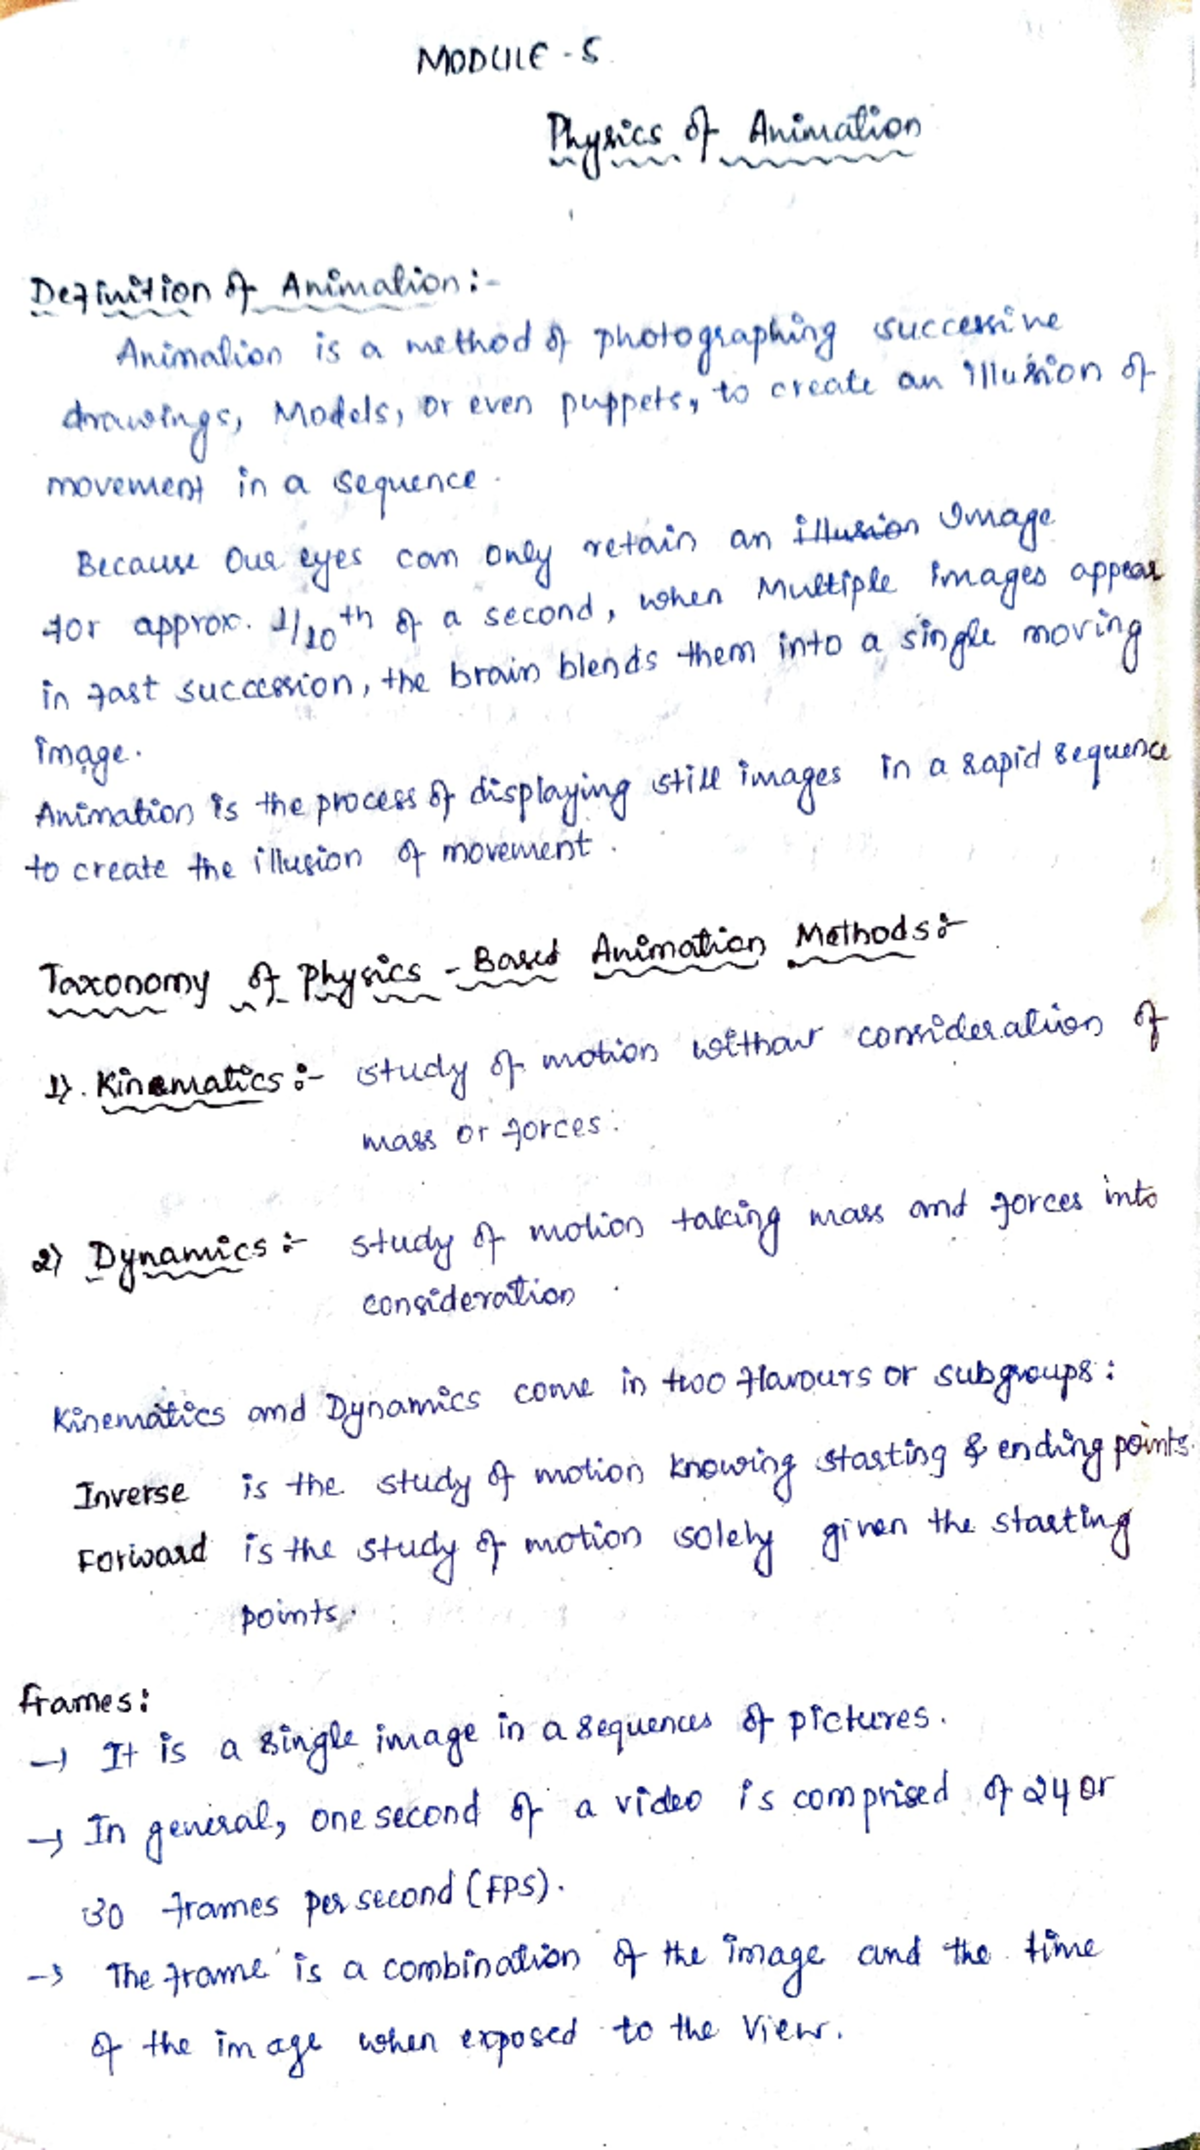 MODULE - 5
Physics of Animation
Definition of Animation :-
Animation is a method of photographing successive
drawings, Models, or even puppets, to create an illusion of
movement in a sequence.
Because Our eyes can only retain an illusion Image
for approx. 1/10th of a second, when Multiple images appear
in fast succession, the brain blends them into a single moving
image.
Animation is the process of displaying still images in a rapid sequence
to create the illusion of movement.
Taxonomy of Physics - Based Animation Methods :-
1). Kinematics :- study of motion without consideration of
mass or forces.
2) Dynamics :- study of motion taking mass and forces into
consideration.
Kinematics and Dynamics come in two flavours or subgroups :
Inverse is the study of motion knowing starting & ending points.
Forward is the study of motion solely given the starting
points.
frames :
→ It is a single image in a sequences of pictures.
→ In general, one second of a video is comprised of 24 or
30 frames per second (FPS).
→ The frame is a combination of the image and the time
of the image when exposed to the view.